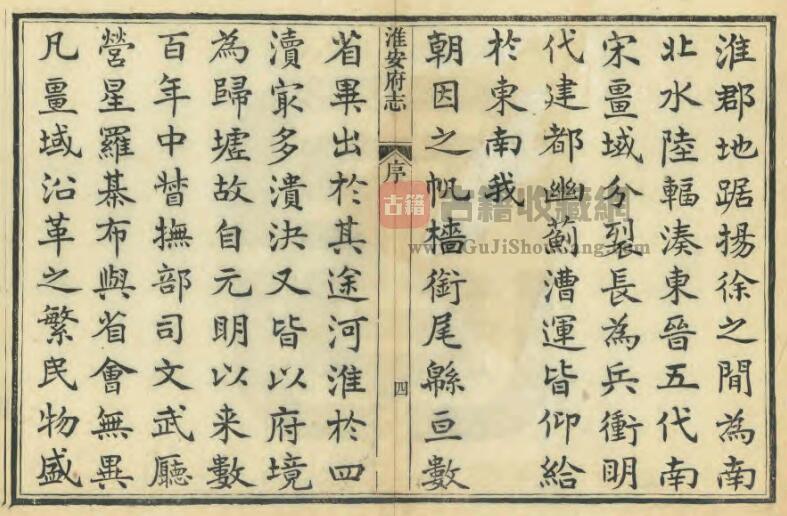 淮郡地踞揚徐之間為南
北水陸輻湊東晉五代南
宋畺域分裂長為兵衝明
代建都幽薊漕運皆仰給
於東南我
朝因之帆檣銜尾緜亘數
淮安府志
序
四
省畢出於其途河淮於四
瀆㝡多潰決又皆以府境
為歸墟故自元明以来數
百年中督撫部司文武廳
營星羅棊布與省會無異
凡畺域沿革之繁民物盛
古籍
古籍收藏網
www.GuJiShouCang.com